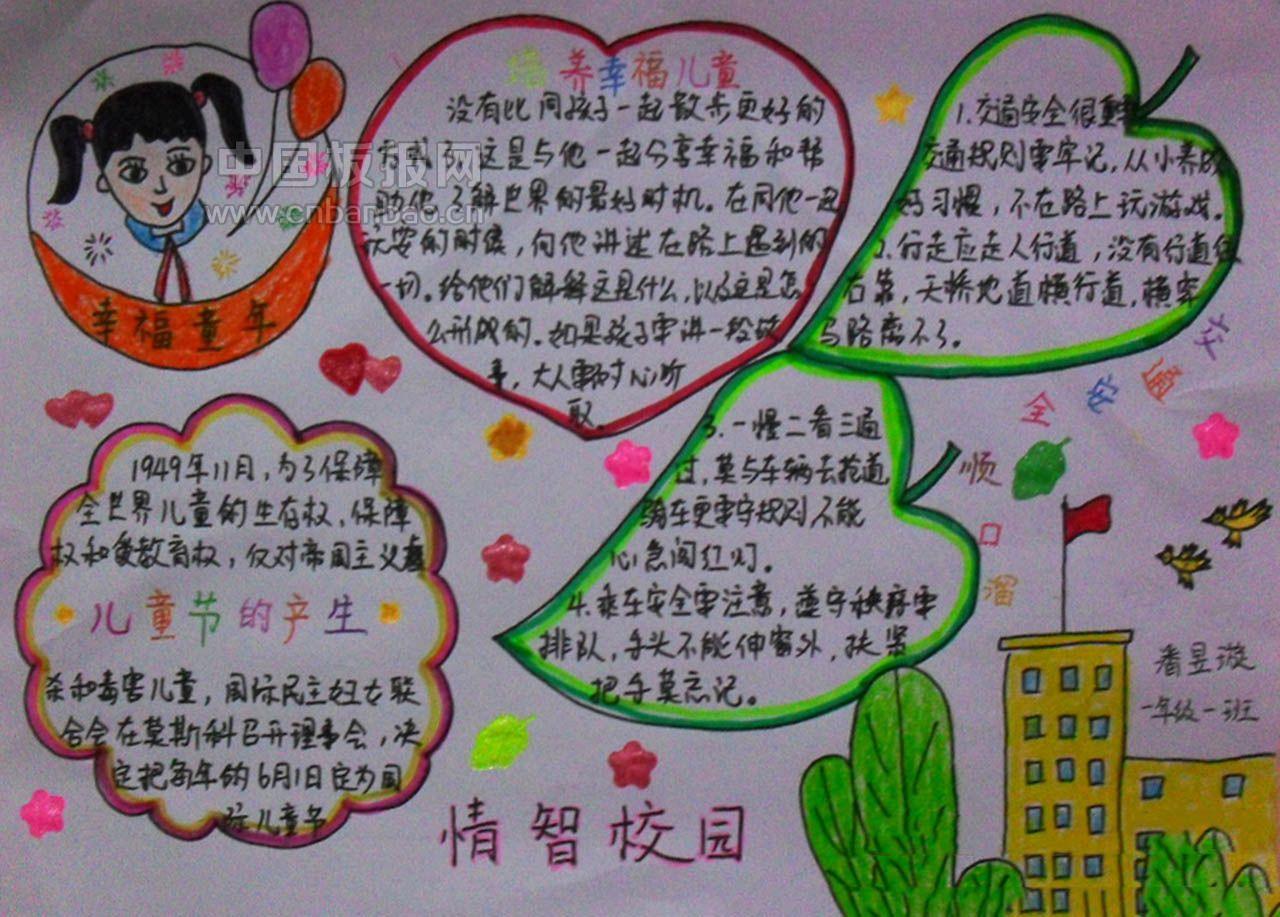 幸福童年
中国板报网
www.cnbanbao.cn
培养幸福儿童
没有比同孩子一起散步更好的
方式了,这是与他一起分享幸福和帮
助他了解世界的最好时机。在同他一起
玩安的时候,向他讲述在路上遇到的
一切。给他们解释这是什么,以及这是怎
么形成的。如果孩子要讲一段故
事,大人要耐心听
取。
1.交通安全很重要
交通规则要牢记,从小养成
好习惯,不在路上玩游戏。
2.行走应走人行道,没有行道往
右靠,天桥地道横行道,横穿
马路离不了。
交通安全顺口溜
3.一慢二看三通
过,莫与车辆去抢道
骑车更要守规则不能
心急闯红灯。
4.乘车安全要注意,遵守秩序要
排队,手头不能伸窗外,扶紧
把手莫忘记。
1949年11月,为了保障
全世界儿童的生存权,保障
权和受教育权,反对帝国主义虐
儿童节的产生
杀和毒害儿童,国际民主妇女联
合会在莫斯科召开理事会,决
定把每年的6月1日定为国
际儿童节
潘昱漩
一年级一班
情智校园